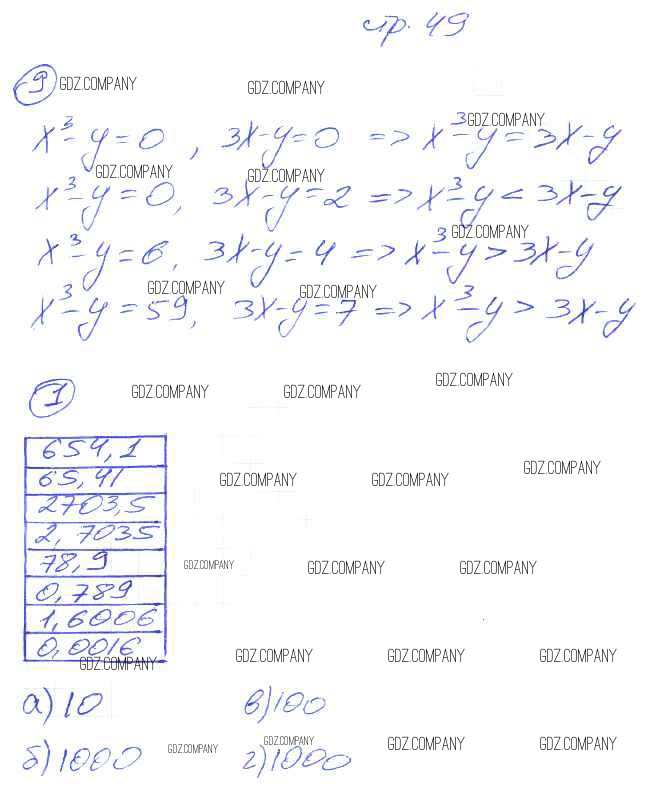 стр. 49
9 GDZ.COMPANY GDZ.COMPANY
x³-y=0, 3x-y=0 => x³-y=3x-y GDZ.COMPANY
GDZ.COMPANY GDZ.COMPANY
x³-y=0, 3x-y=2 => x³-y<3x-y
GDZ.COMPANY
x³-y=6, 3x-y=4 => x³-y>3x-y
GDZ.COMPANY GDZ.COMPANY
x³-y=59, 3x-y=7 => x³-y>3x-y
1 GDZ.COMPANY GDZ.COMPANY GDZ.COMPANY
654,1
65,41 GDZ.COMPANY GDZ.COMPANY GDZ.COMPANY
2703,5
2,7035
78,9 GDZ.COMPANY GDZ.COMPANY GDZ.COMPANY
0,789
1,6006
0,0016
GDZ.COMPANY GDZ.COMPANY GDZ.COMPANY GDZ.COMPANY
а) 10 в) 100
б) 1000 GDZ.COMPANY г) 1000 GDZ.COMPANY GDZ.COMPANY GDZ.COMPANY